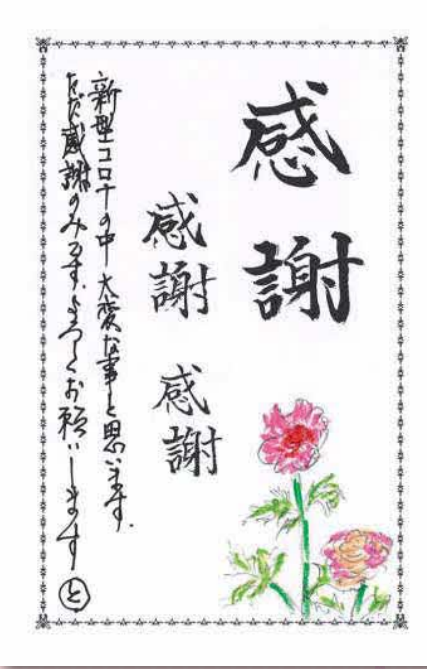 感謝
感謝 感謝
新型コロナの中 大変な事と思います.
ただ感謝のみです.よろしくお願いします と